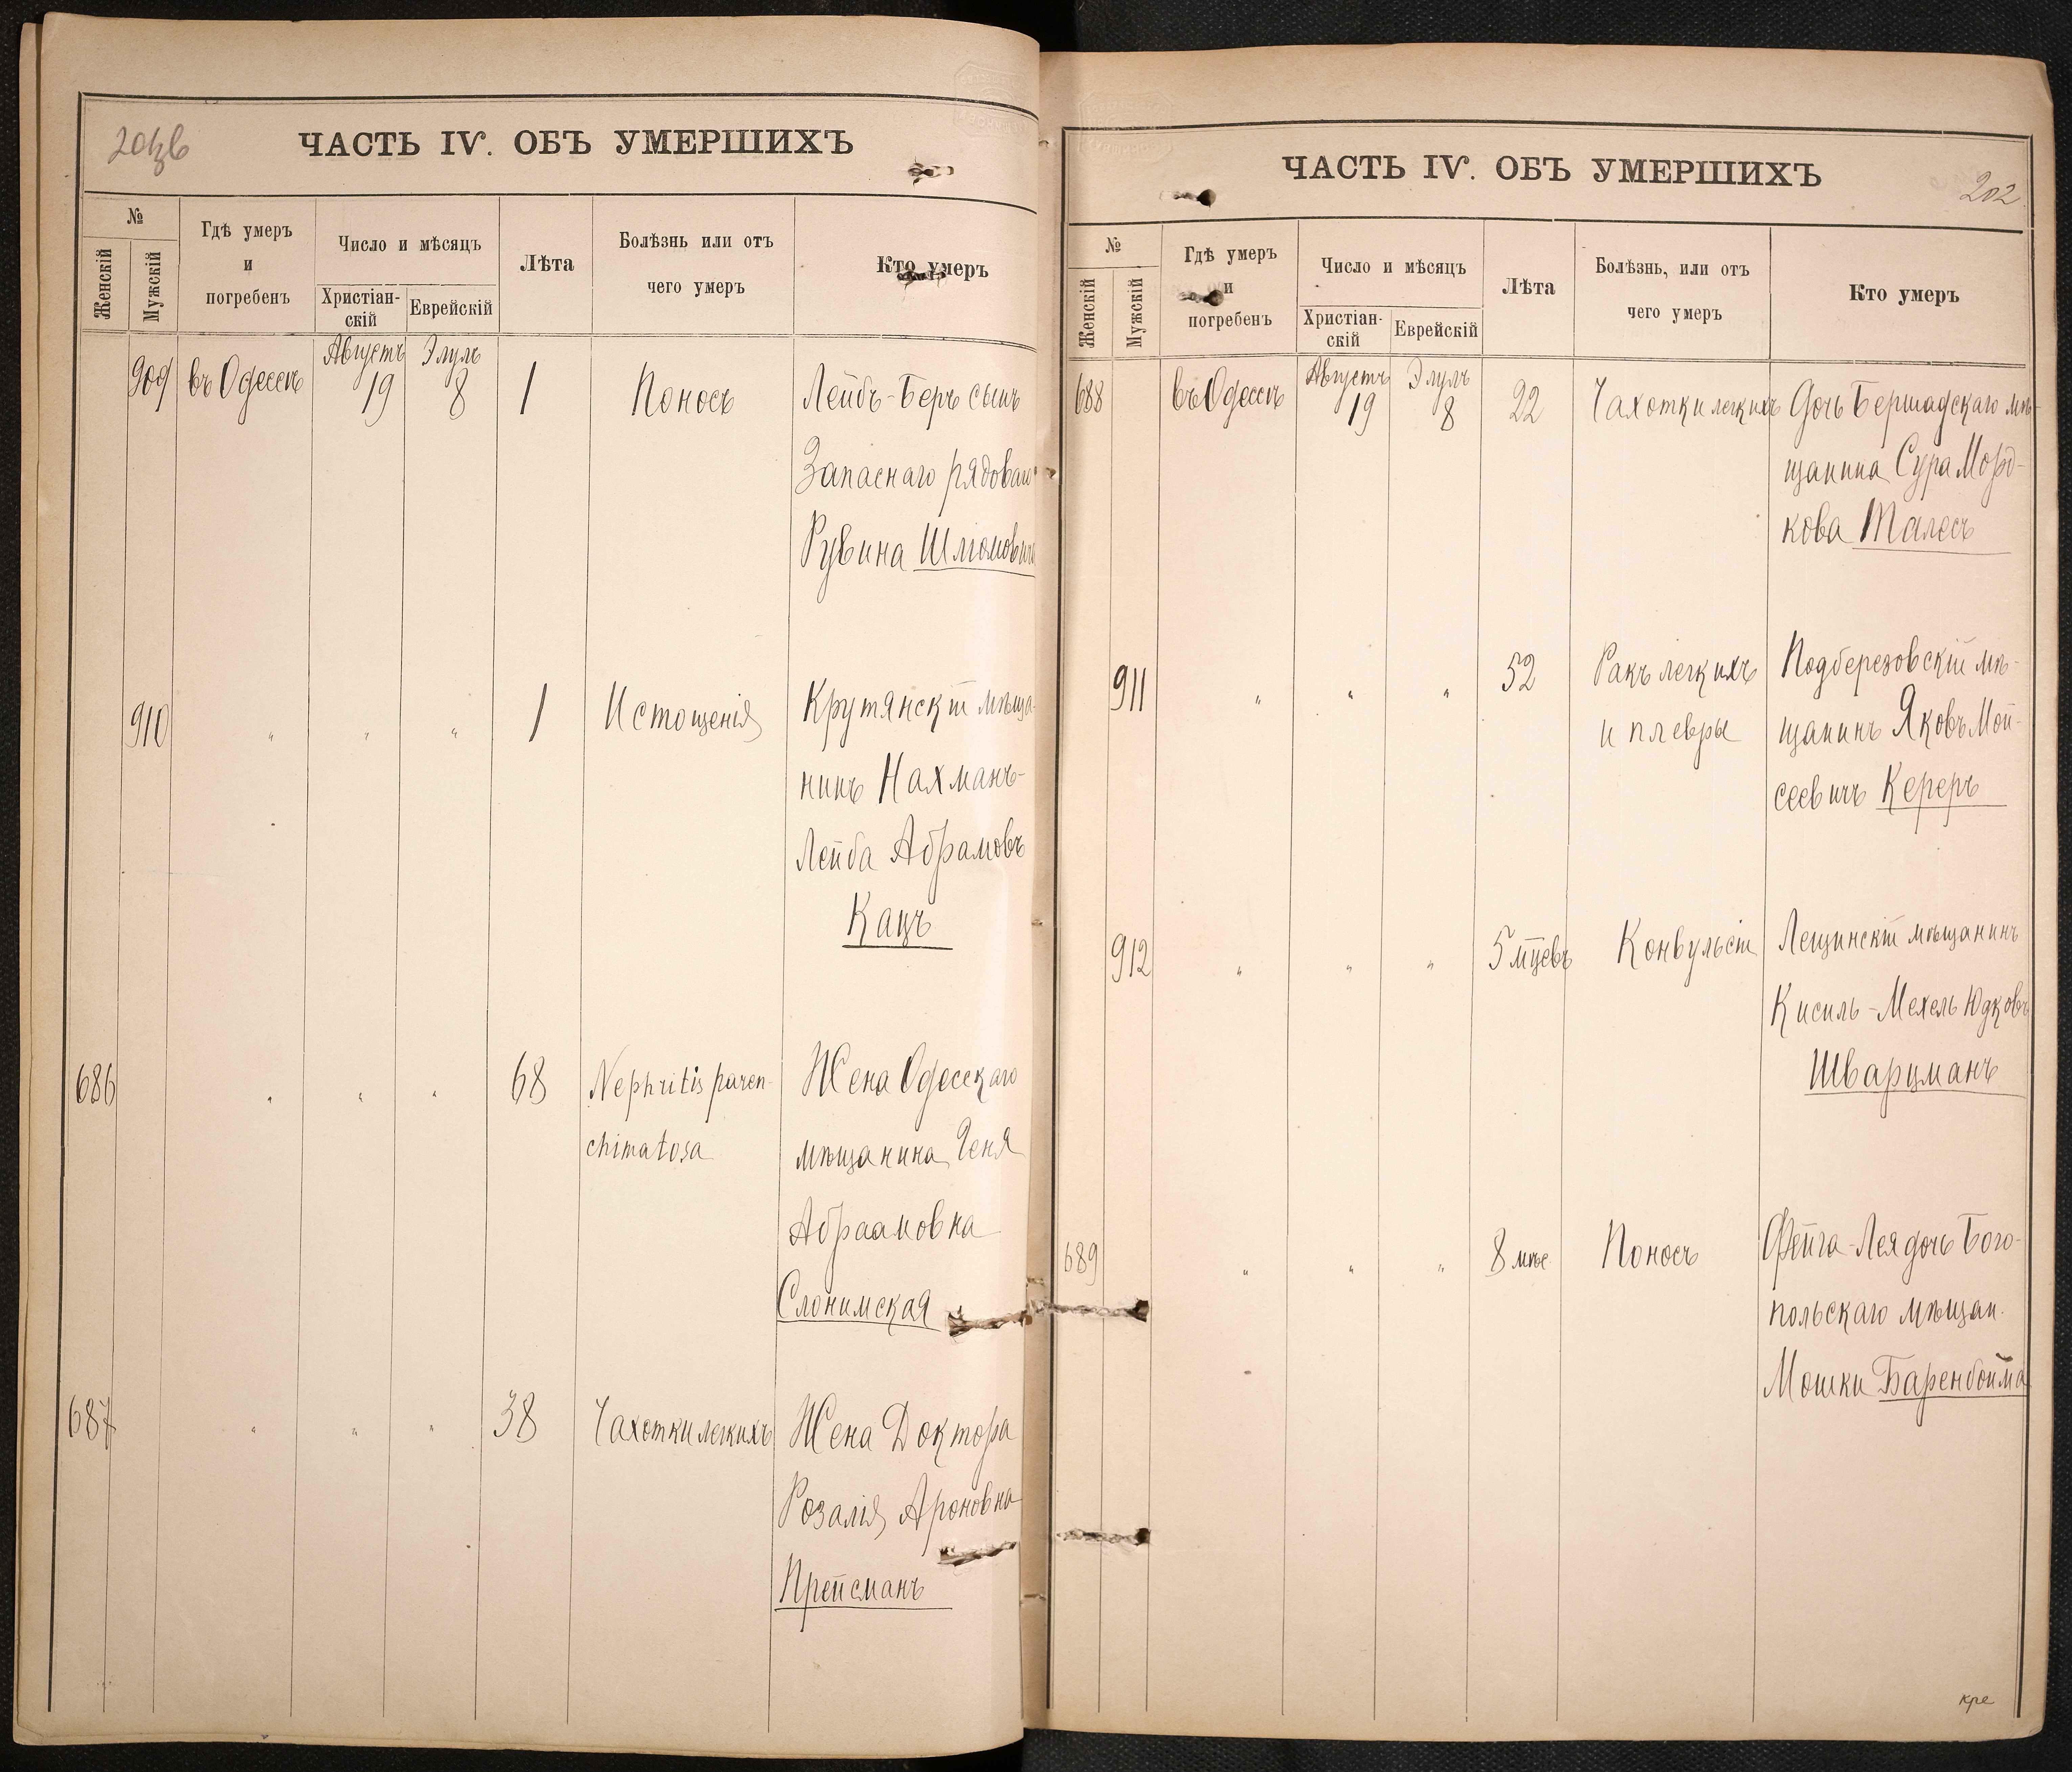 201 зв
ЧАСТЬ IV. ОБЪ УМЕРШИХЪ
№
Женскій
Мужскій
Гдѣ умеръ
и
погребенъ
Число и мѣсяцъ
Христіан-
скій
Еврейскій
Лѣта
Болѣзнь или отъ
чего умеръ
Кто умеръ
Августъ Элулъ
909 въ Одессѣ 19 8 1 Поносъ Лейбъ-Беръ сынъ
Запаснаго рядоваго
Рувина Шліомовича
910 " " " 1 Истощенія Крутянскій мѣща-
нинъ Нахманъ-
Лейба Абрамовъ
Кацъ
686 " " " 68 Nephritis paren- Жена Одесскаго
chimatosa мѣщанина Геня
Абраамовна
Слонимская
687 " " " 38 Чахотки легкихъ Жена Доктора
Розалія Ароновна
Прейсманъ
ЧАСТЬ IV. ОБЪ УМЕРШИХЪ
202
№
Женскій
Мужскій
Гдѣ умеръ
и
погребенъ
Число и мѣсяцъ
Христіан-
скій
Еврейскій
Лѣта
Болѣзнь, или отъ
чего умеръ
Кто умеръ
Августъ Элулъ
688 въ Одессѣ 19 8 22 Чахотки легкихъ Дочь Бершадскаго мѣ-
щанина Сура Морд-
кова Талесъ
911 " " " 52 Ракъ легкихъ Подберезовскій мѣ-
и плевры щанинъ Яковъ Мой-
сеевичъ Кереръ
912 " " " 5 мцевъ Конвульсіи Лещинскій мѣщанинъ
Кисиль-Мехель Юдковъ
Шварцманъ
689 " " " 8 мѣс Поносъ Фейга-Лея дочь Бого-
польскаго мѣщан.
Мошки Баренбойма
кре